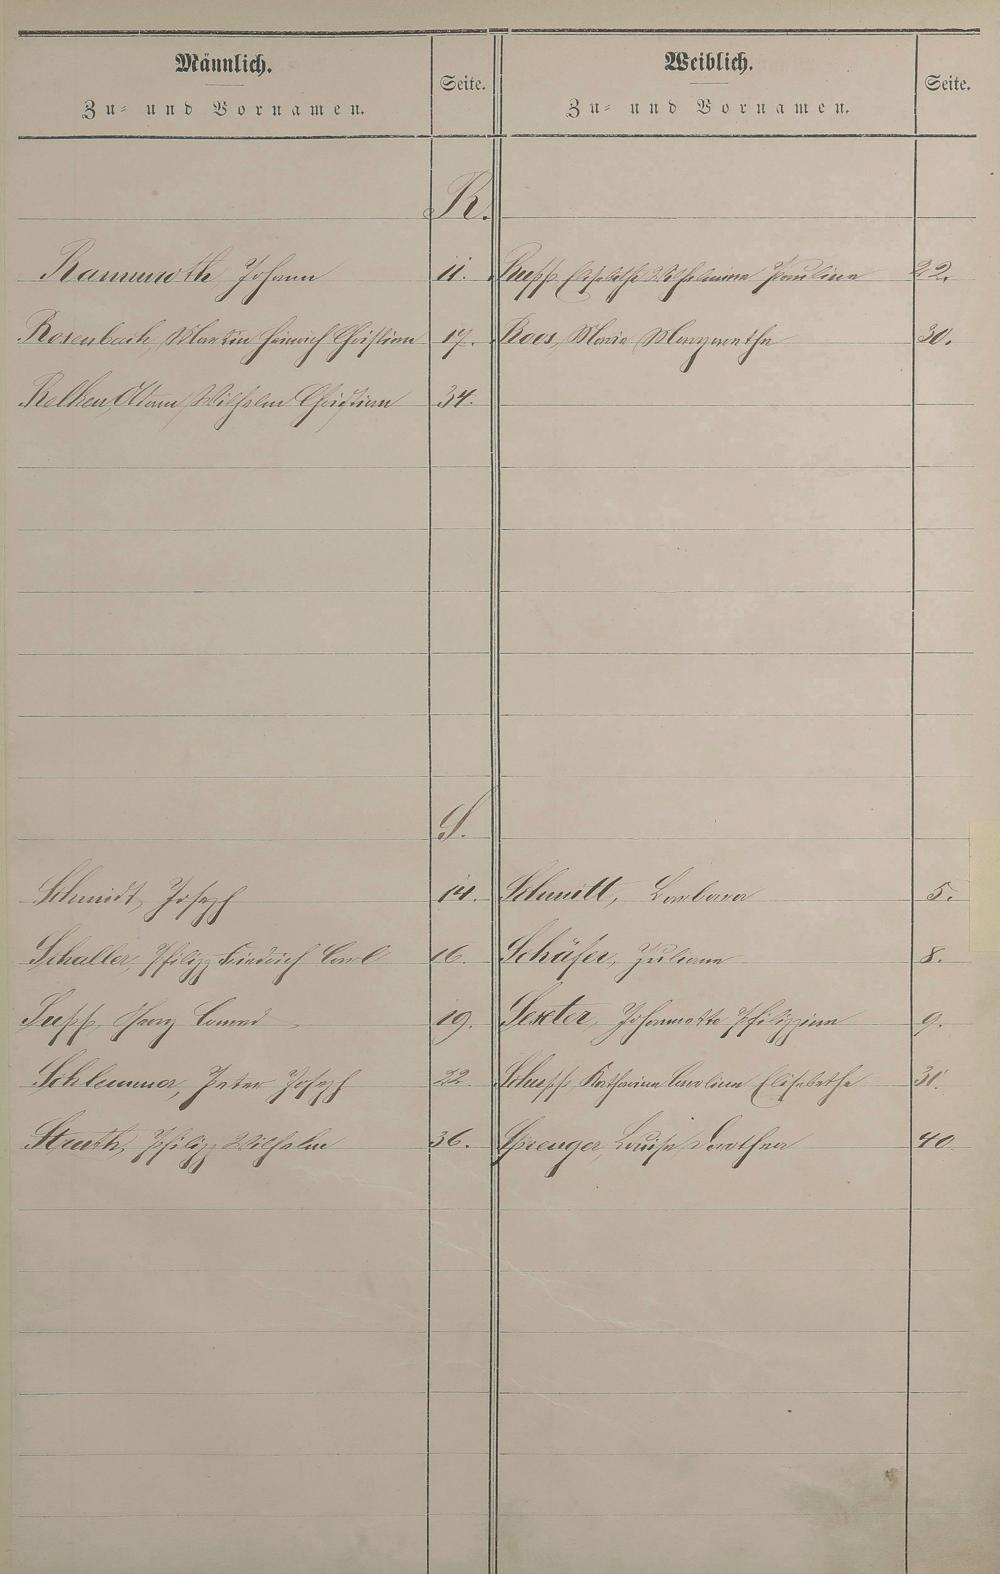 Männlich.
Zu- und Vornamen.
Seite.
Weiblich.
Zu- und Vornamen.
Seite.
R.
Rammroth, Johann 11. Rupp Elisabethe Wilhelmine Pauline 22.
Rosenbach, Martin Heinrich Christian 17. Roos, Maria Margarethe 30.
Adam, Wilhelm Christian 34.
S.
Schmidt, Joseph 14. Schmitt, Barbara 5.
Schaller, Philipp Friedrich Carl 16. Schäfer, Juliane 8.
Georg Conrad 19. Sexter, Johannette Philippine 9.
Schlemmer, Peter Joseph 22. Schupp, Katharine Caroline Elisabethe 31.
Struth, Philipp Wilhelm 36. Sprenger, Louise Dorothea 40.